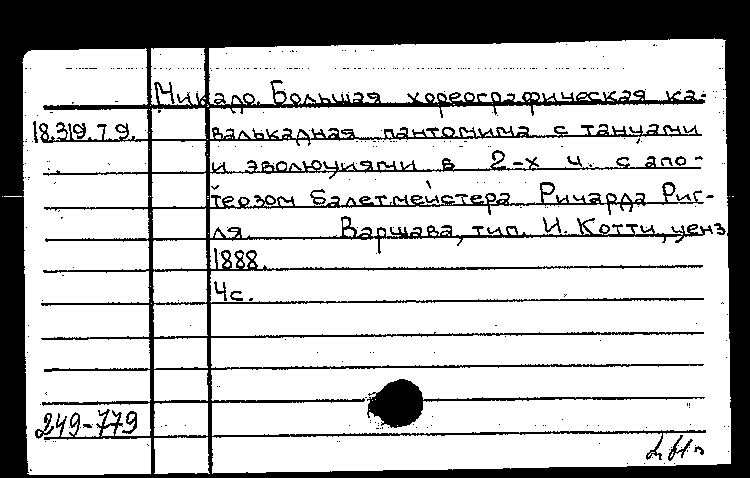 Микадо. Большая хореографическая ка-
18.319.7.9. валькадная пантомима с танцами
и эволюциями в 2-х ч. с апо-
теозом балетмейстера Ричарда Риг-
ля. Варшава, тип. И. Котти, ценз.
1888.
4с.
249-779